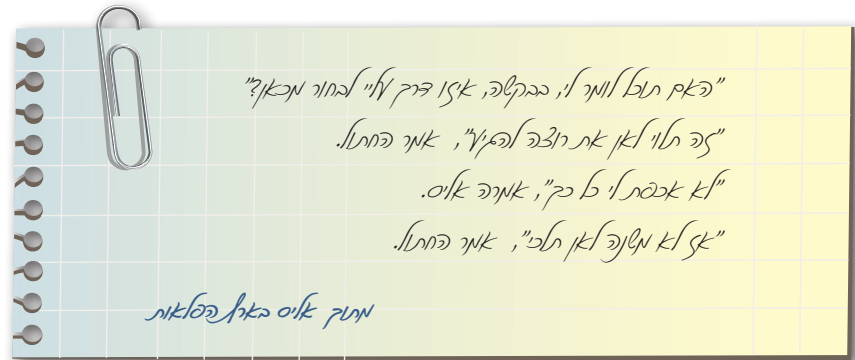 "האם תוכל לומר לי, בבקשה, איזו דרך עליי לבחור מכאן?"
"זה תלוי לאן את רוצה להגיע", אמר החתול.
"לא אכפת לי כל כך", אמרה אליס.
"אז לא משנה לאן תלכי", אמר החתול.
מתוך אליס בארץ הפלאות